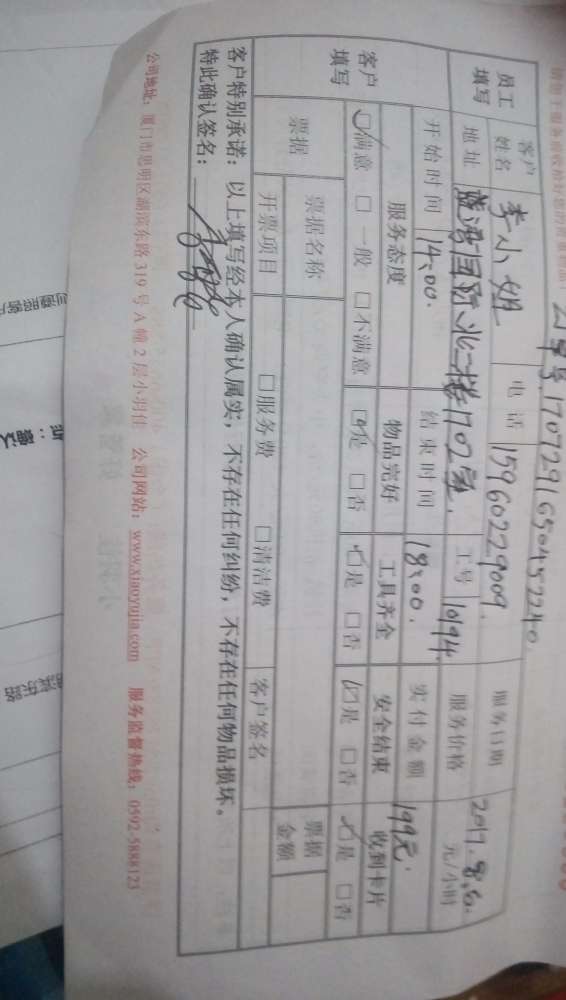 订单号 1707291650452240.
员工填写
客户姓名 李小姐 电话 15960229009. 服务日期 2017.8.5.
地址 蓝湾国际北二楼1702室. 工号 10194. 服务价格 元/小时
开始时间 14:00. 结束时间 18:00. 实付金额 199元.
客户填写
服务态度 物品完好 工具齐全 安全结束 收到卡片
☑满意 □一般 □不满意 ☑是 □否 ☑是 □否 ☑是 □否 ☑是 □否
票据 票据名称 票据金额
开票项目 □服务费 □清洁费 客户签名
客户特别承诺：以上填写经本人确认属实，不存在任何纠纷，不存在任何物品损坏。
特此确认签名：
公司地址：厦门市思明区湖滨东路 319 号 A 幢 2 层小羽佳 公司网站：www.xiaoyujia.com 服务监督热线：0592-5888123